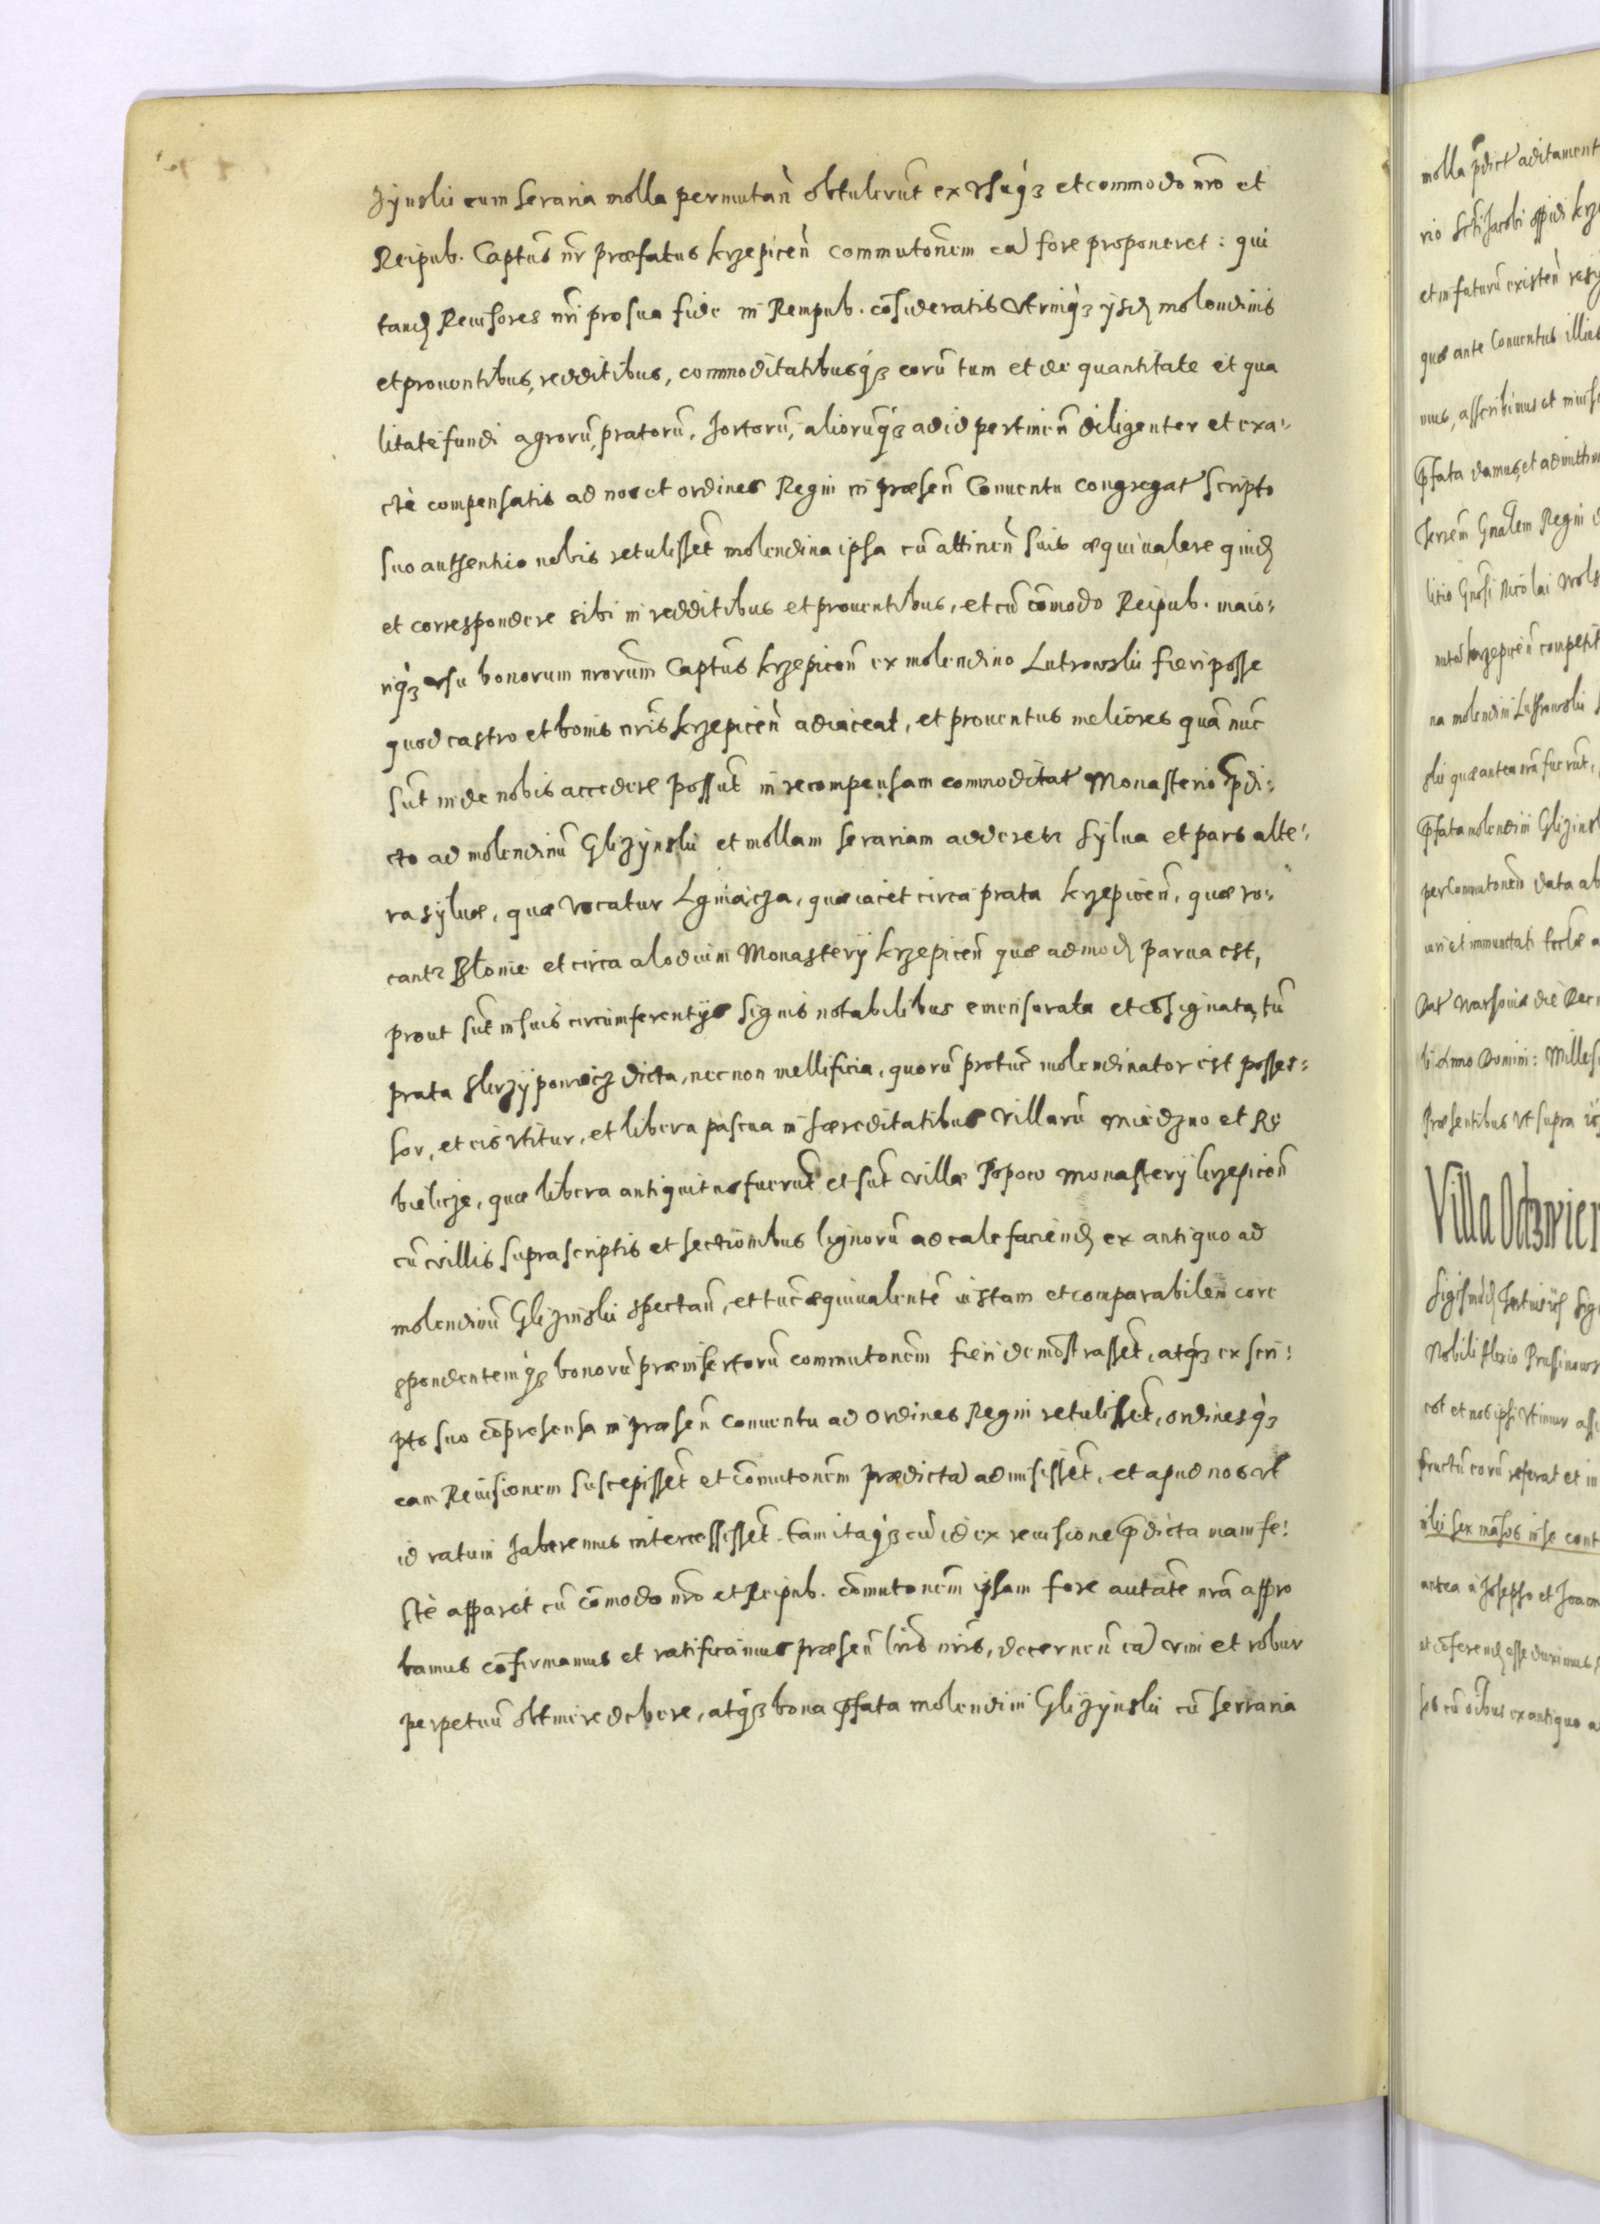 zynskii cum seraria molla permutan̄ obtulerūt ex vsuq́ȝ et commodo nr̄o et
Reipub. Captūs nr̄ præfatus krzepicen̄ commutonēm eā fore proponeret: qui
tand̨ Reuisores nr̄i pro sua fide in Rempub. cōsideratis vtrinq́ȝ ysd̨ molendinis
et prouentibus, redditibus, commoditatibusq́ȝ eorū tum et de quantitate et qua
litate fundi agrorū, pratorū, hortorū, aliorūq́ȝ ad id pertinen̄ diligenter et exa-
ctè compensatis ad nos et ordines Regni in præsen̄ Conuentu congregat̄ scripto
suo authentico nobis retulissēt molendina ipsa cū attinen̄ suis æquiualere quid̨
et correspondere sibi in redditibus et prouentibus, et cū cōmodo Reipub. maio-
riq́ȝ vsu bonorum nrorum̄ Captūs krzepicen̄ ex molendino Lutrowskii fieri posse
quod castro et bonis nr̄is krzepicen̄ adiaceat, et prouentus meliores quā nūc
sūt inde nobis accedere possūt in recompensam commoditat̄ Monasterio p̄di-
cto ad molendinū Glizynskii et mollam serariam adderetr sylua et pars alte-
ra syluæ, quæ vocatur Lgniącza, quæ iacet circa prata krzepicen̄, quæ vo-
cantr Błonie et circa alodium Monasterÿ krzepicen̄ quæ admod̨ parua est,
prout sūt in suis circumferentÿs signis notabilibus emensurata et cōsignata, tū
prata slirzÿpowicz dicta, nec non mellificia, quorū protūc molendinator est posses-
sor, et eis vtitur, et libera pascua in hæreditatibus villarū Miedzno et Rę
bielicze, quæ libera antiquitus fuerūt et sūt villæ Popow Monasterÿ krzepicen̄
cū villis suprascriptis et sectionibus lignorū ad calefaciend̨ ex antiquo ad
molendinū Glizinskii spectan̄, et tūc æquiualentē iustam et comparabilem core
spondentemq́ȝ bonorū præinsertorū commutonēm fieri demōstrassēt, atq́ȝ ex scri-
pto suo cōprehensa in præsen̄ Conuentu ad Ordines Regni retulissēt, ordinesq́ȝ
eam Reuisionem suscepissēt et cōmutonēm prædictā admisissēt, et apud nos vt
id ratum haberemus intercessissēt. tam itaq́ȝ cū id ex reuisione p̄dicta manife-
stè apparet cū cōmodo nr̄o et Reipub. cōmutonēm ipsam fore autāte nrā appro
bamus cōfirmamus et ratificamus præsen̄ lris̄ nr̄is, decernen̄ eā vim et robur
perpetuū obtinere debere, atq́ȝ bona p̄fata molendini Glizynskii cū serraria
molla p̄dict̄ aditament
rio scti Jacobi oppidi krze
et in futurū existen̄
quæ ante Conuentus illius
mus, asscribimus et
p̄fata damus, et
Gnālem Regni
Gnosi Nicolai Wols
krzepicen̄ competit
na molendini Luthrowskii
skii quæ antea nrā fuerūt,
p̄fata molendini Glizinsk
per Commutonēm data ab
iuri et immunitati Ecclæ
Dat̄ Warsouiæ die
Anno Domini: Milles
Præsentibus vt supra
Villa
Nobili Alexio Prussinows
est et nos ipsi vtimur
fructū eorū referat et in
sex mansos in se cont
antea à Josepho et Joan
et cōferend̨ esse duximus
cū oībus ex antiquo a